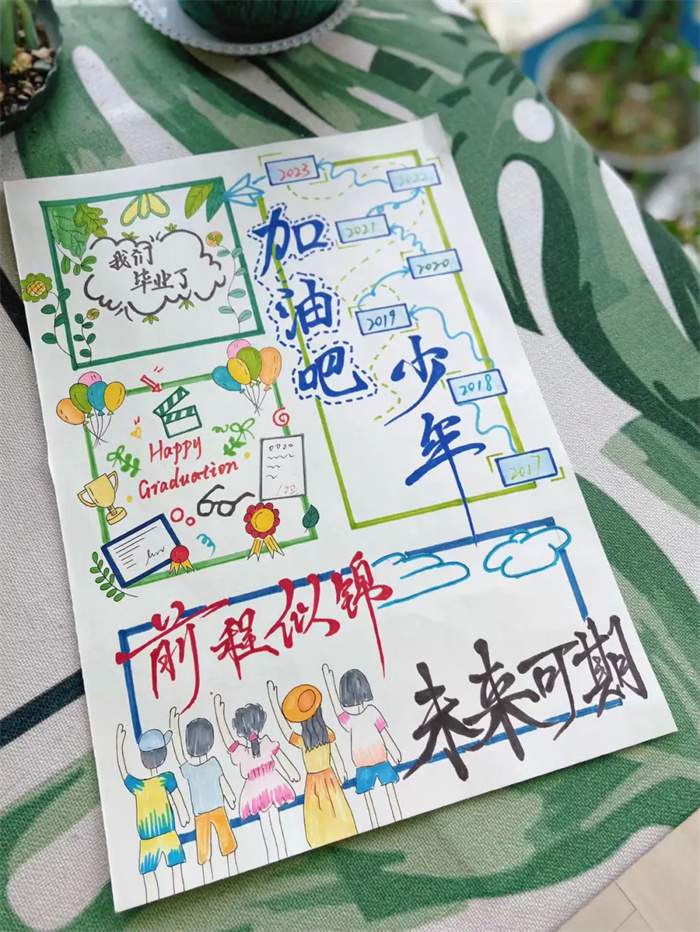 我们
毕业了
Happy
Graduation
2023
2022
2021
2020
2019
2018
2017
加油吧
少年
前程似锦
未来可期